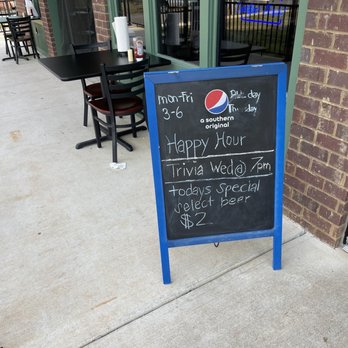 mon-Fri
3-6
day
Thursday
a southern
original
Happy Hour
Trivia Wed@ 7pm
todays Special
select beer
$2